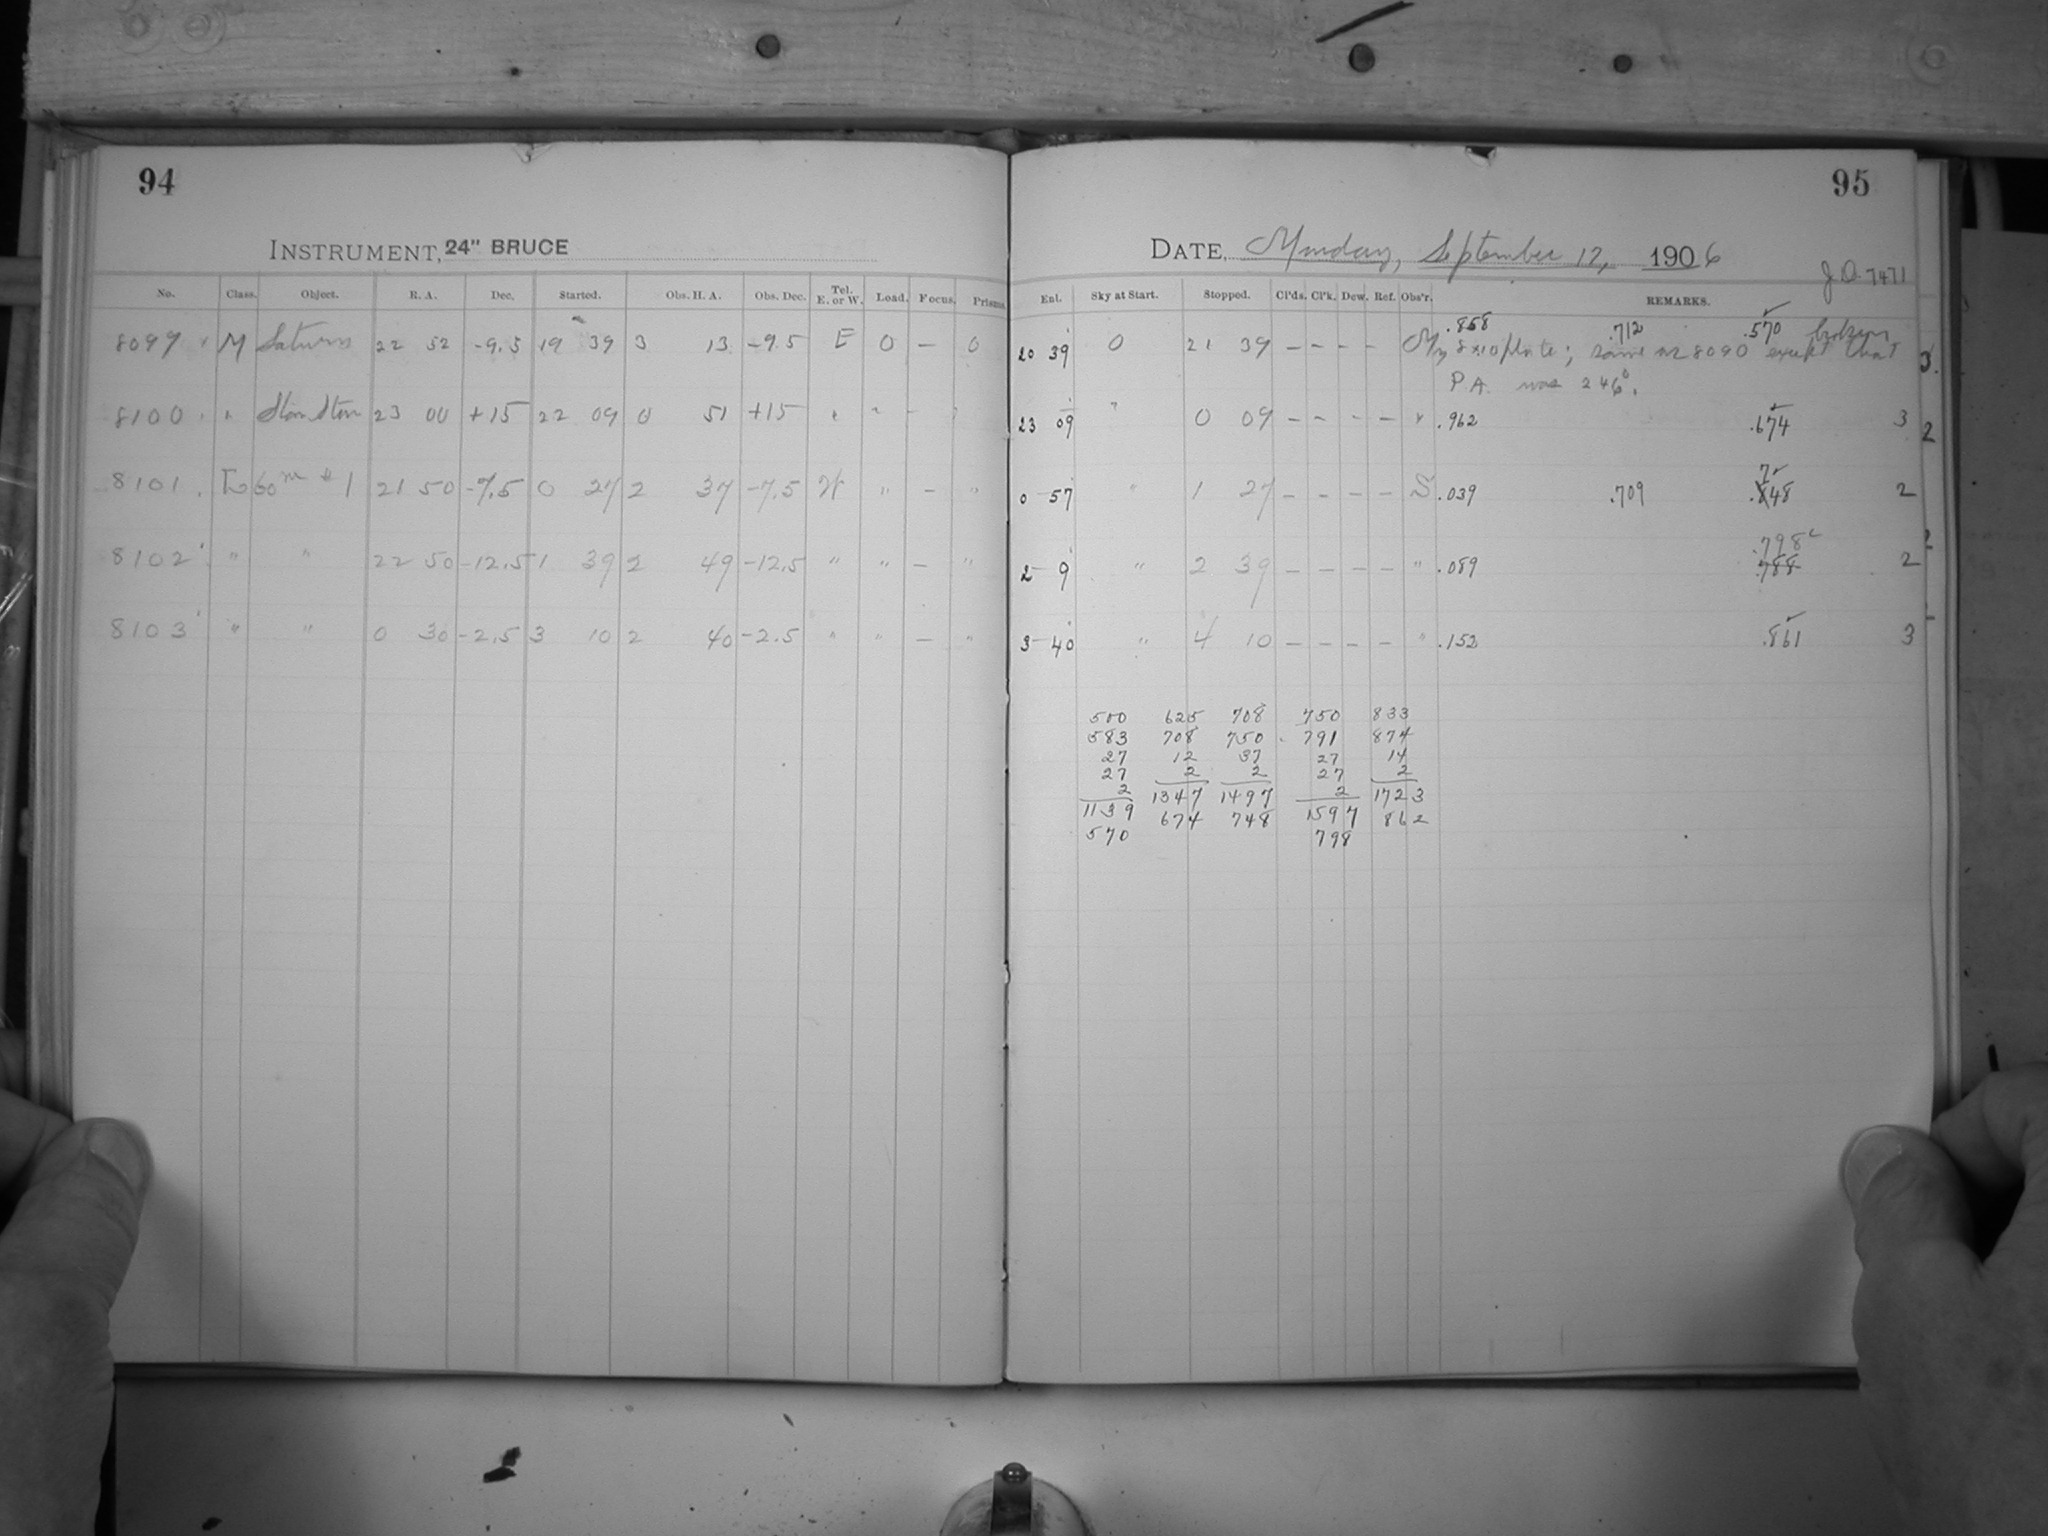 94
INSTRUMENT, 24" BRUCE
No. Class. Object. R. A. Dec. Started. Obs. H. A. Obs. Dec. Tel. E. or W. Load. Focus. Prisms.
8099 M Saturn 22 52 -9.5 19 39 3 13 -9.5 E 0 — 0
8100 " 23 00 +15 22 09 0 51 +15 " " -
8101 60m # 1 21 50 -7.5 0 27 2 37 -7.5 W " — "
8102 " " 22 50 -12.5 1 39 2 49 -12.5 " " — "
8103 " " 0 30 -2.5 3 10 2 40 -2.5 " " — "
95
DATE, Monday, September 17, 1906
J.D. 7471
Ent. Sky at Start. Stopped. Cl'ds. Cl'k. Dew. Ref. Obs'r. REMARKS.
.858 .712 .570 broken
20 39 0 21 39 — — — — My 8x10 plate; same as 8090 except that 3.
P A. was 246°.
23 09 " 0 09 — — — — " .962 .674 3 2
7
0 57 " 1 27 — — — — S .039 .709 .848 2
.798
2 9 " 2 39 — — — — " .089 .788 2
3 40 " 4 10 — — — — " .152 .861 3
500 625 708 750 833
583 708 750 791 874
27 12 37 27 14
27 2 2 27 2
2 1347 1497 2 1723
1139 674 748 1597 862
570 798